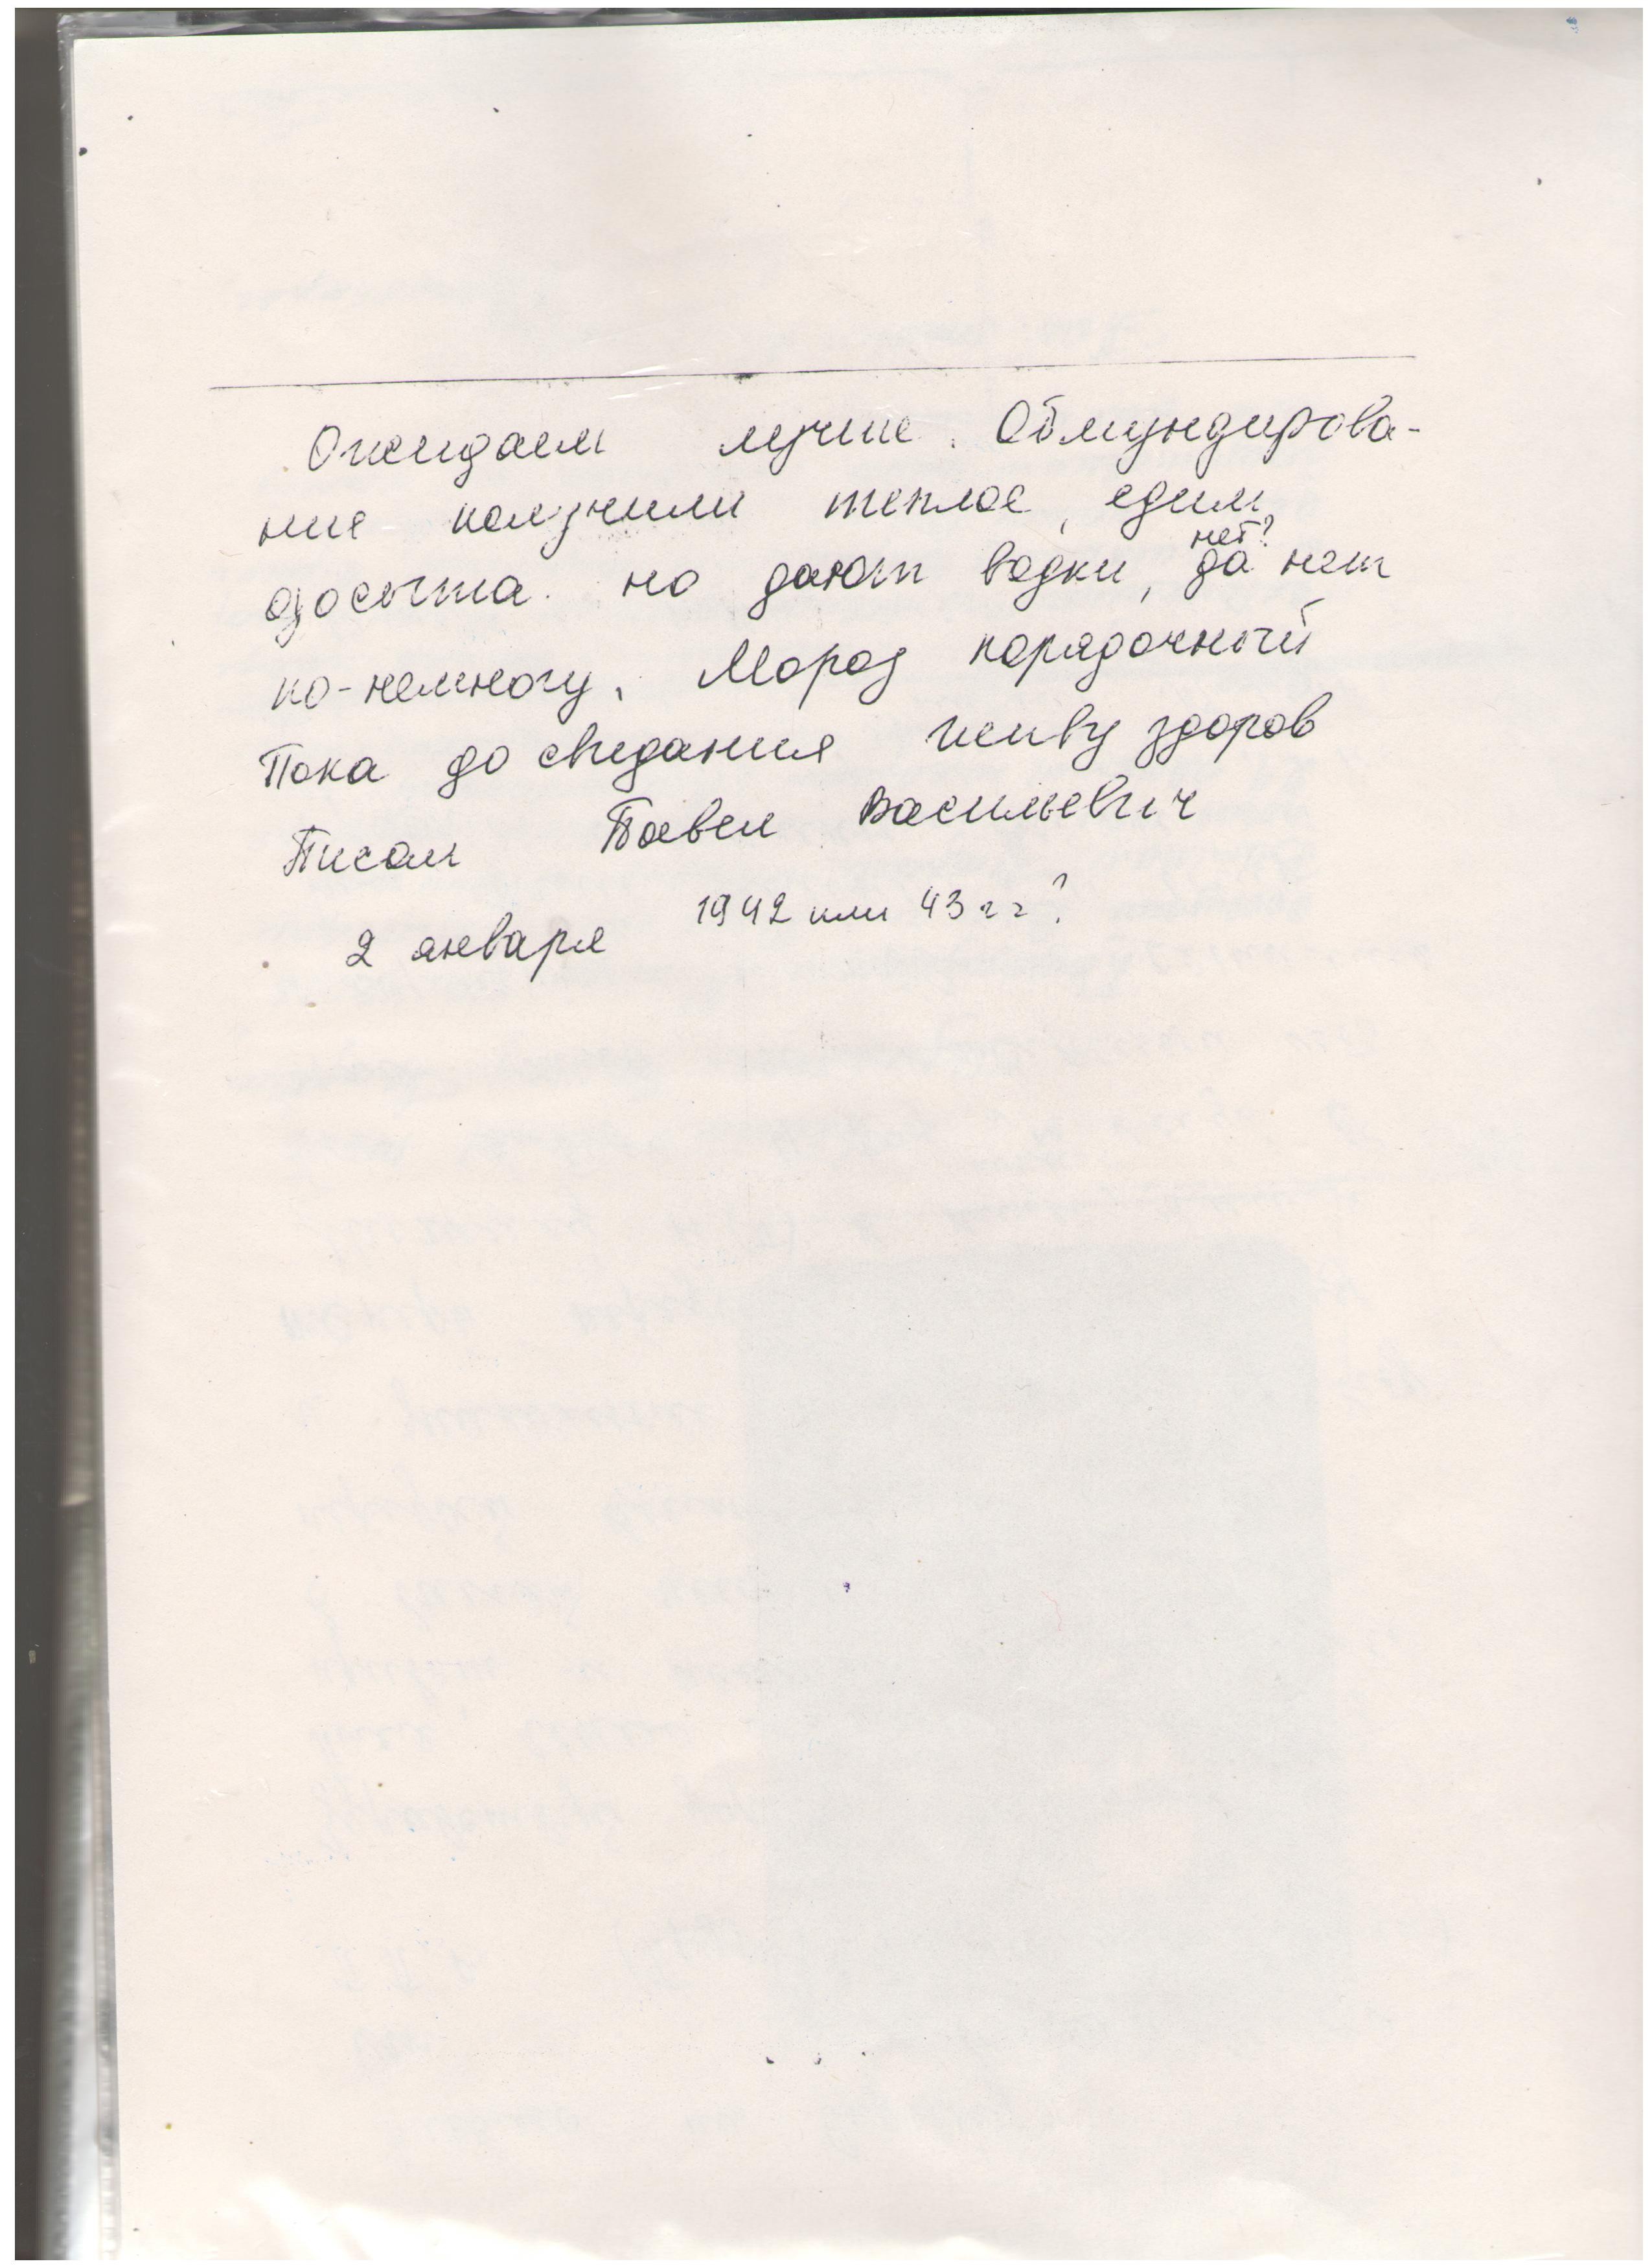 Ожидаем лучше. Обмундирова-
ние получили теплое, едим,
досыта. но дают водки, да нет
нет?
по-немногу. Мороз порядочный
Пока до свидания живу здоров
Писал Павел Васильевич
2 января 1942 или 43 гг?